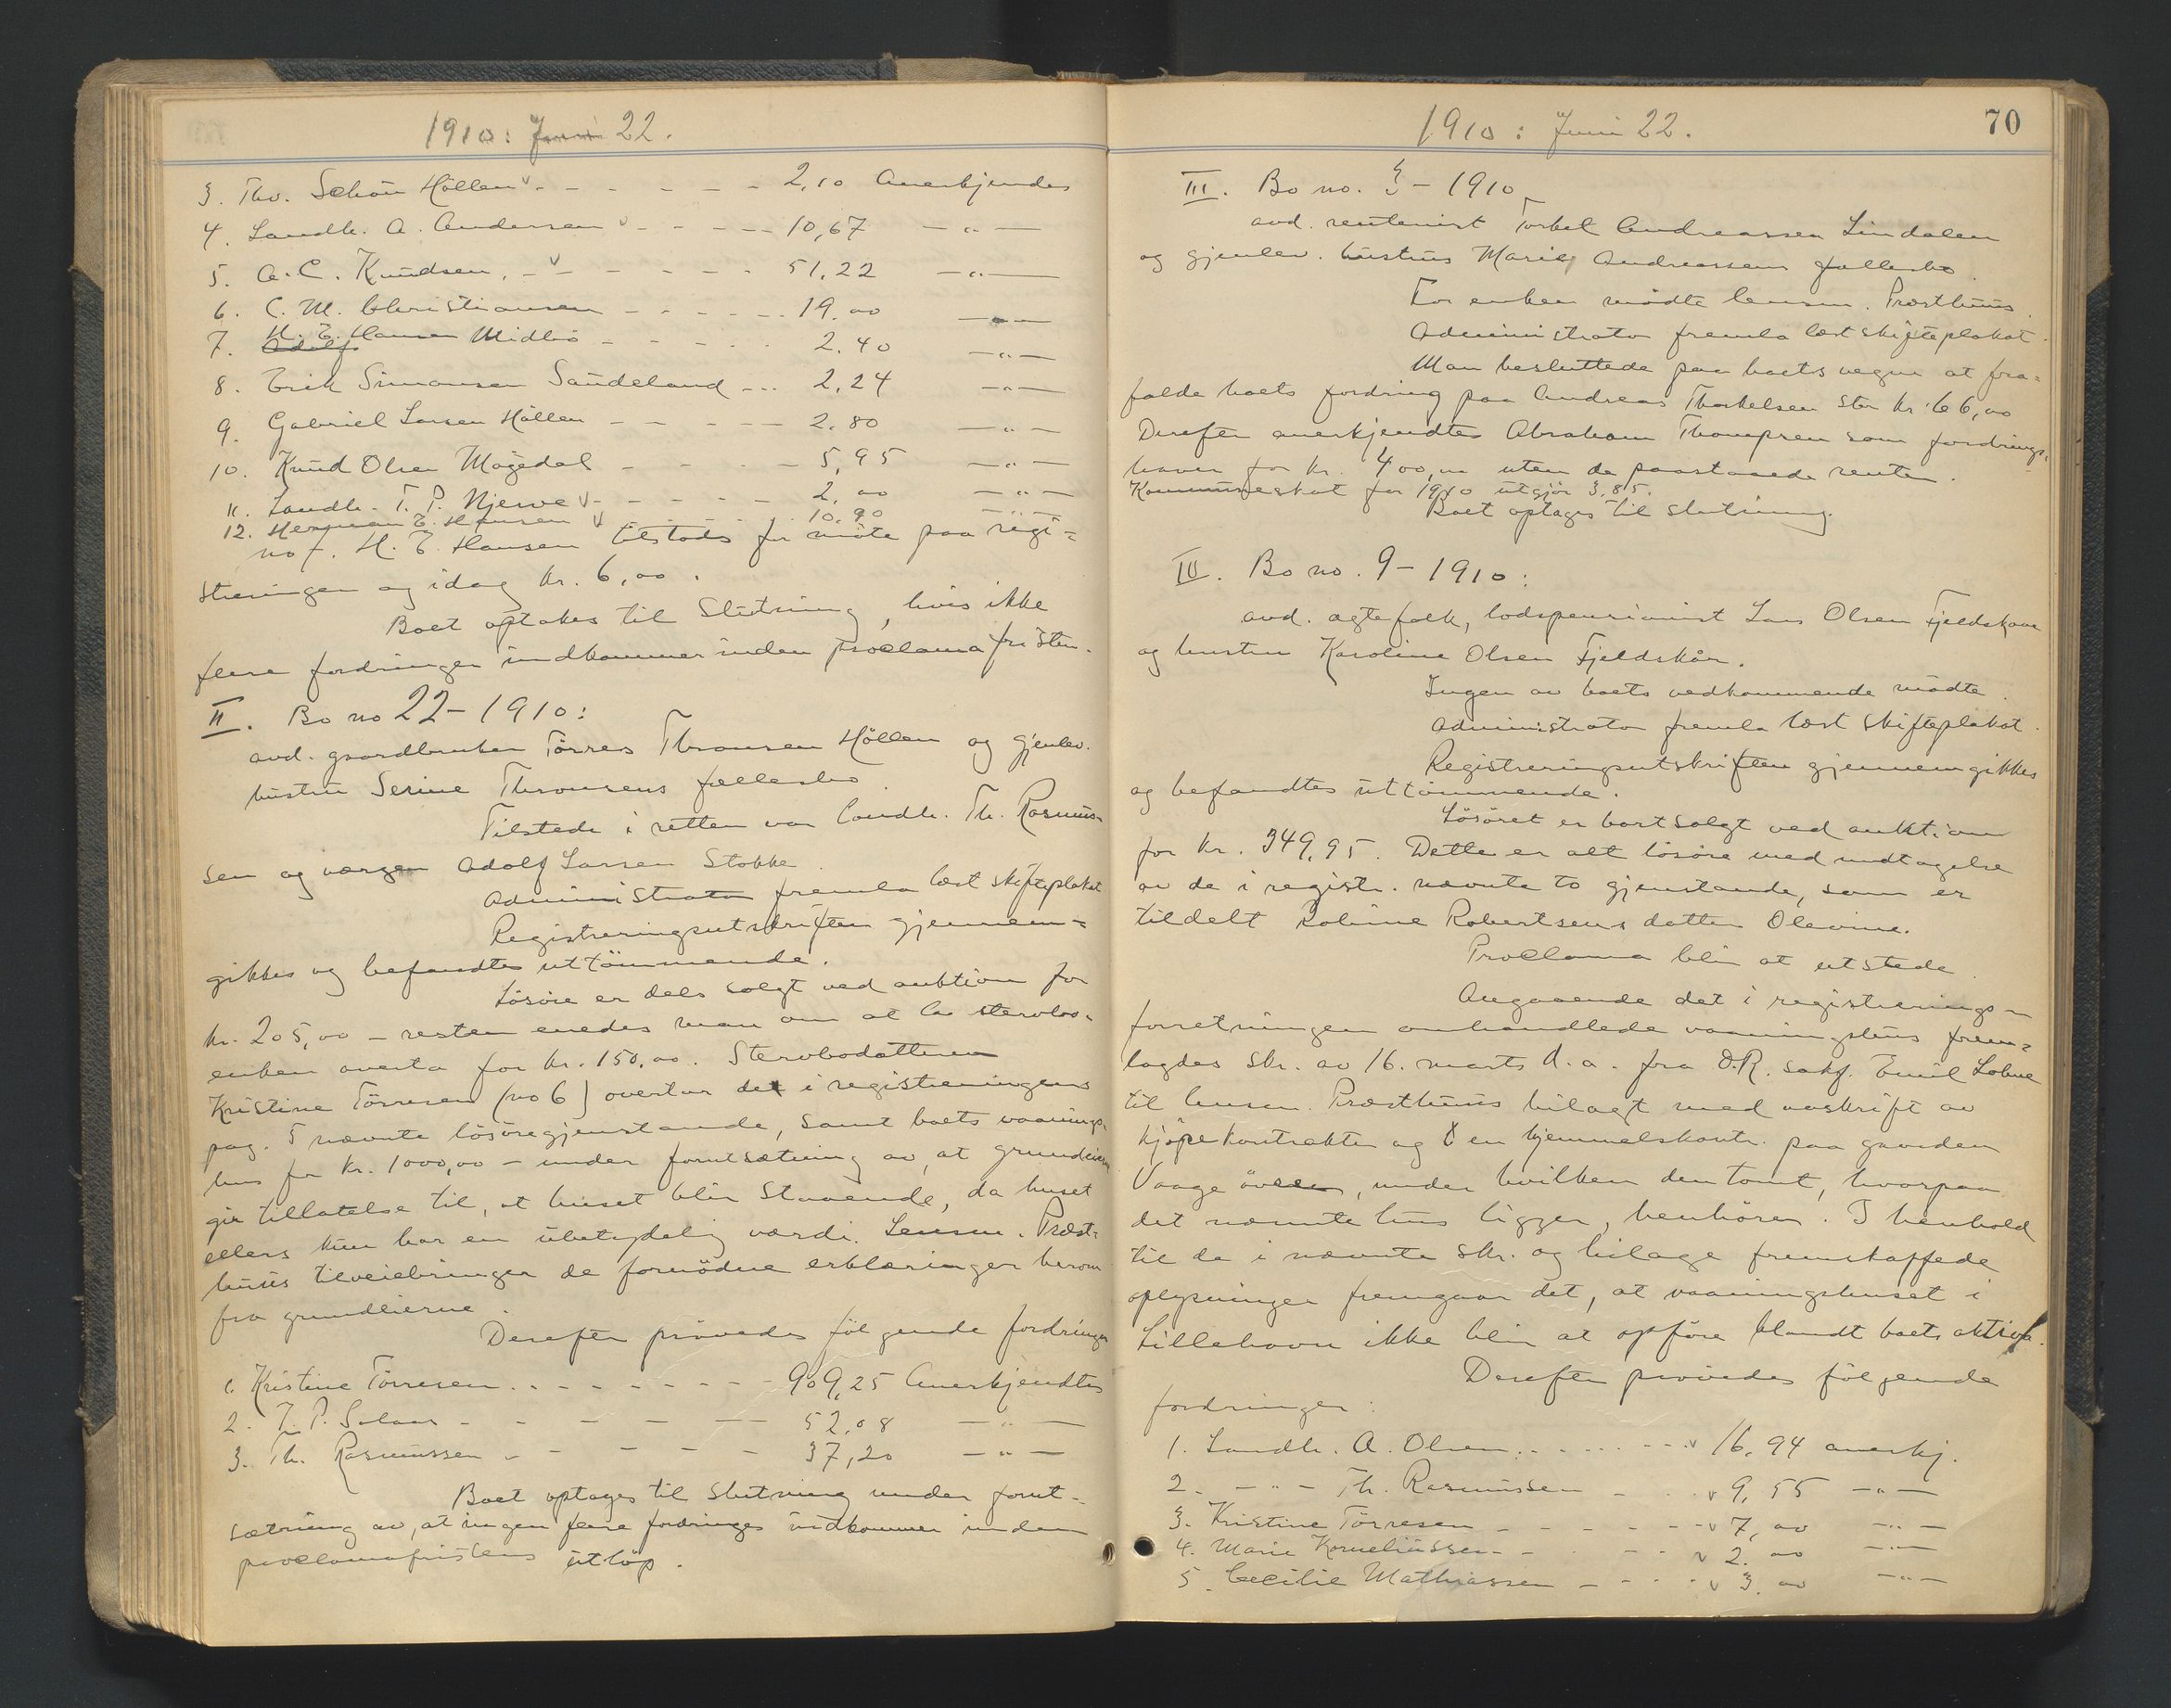 1910: Juni 22.
3. Thv. Schøn Höllen - - - - - 2,10 Anerkjendes
4. Landh. A. Andersen - - - - 10,67 — " —
5. A. C. Knudsen. - - - - - 51,22 — " —
6. C. M. Christiansen - - - - - 19.00 — " —
7. H. E. Hansen Midbö - - - - - 2.40 — " —
8. Erik Simonsen Saudeland - - - 2,24 — " —
9. Gabriel Larsen Höllen - - - - - 2.80 — " —
10. Knud Olsen Møgedal - - - - 5,95 — " —
11. Landh. T. P. Njerve - - - - - 2.00 — " —
12. Herman E. Hansen - - - - 10.90 — " —
no 7. H. E. Hansen tilstodes for møte paa regi=
streringen og idag kr. 6,00.
Boet optakes til Slutning, hvis ikke
flere fordringer indkommer inden proclamafristen.
II. Bo no 22 - 1910:
avd. gaardbruker Törres Thronsen Höllen og gjenlev.
hustru Serine Thronsens fællesbo
Tilstede i retten var landh. Th. Rasmus=
sen og værgen Adolf Larsen Stokke
Administrator fremla læst skifteplakat
Registreringsutskriften gjennem=
gikkes og befandtes uttömmende.
Lösöre er dels solgt ved auktion for
kr. 205,00 - resten enedes man om at la stervbo=
enken overta for kr. 150,00. Stervbodatteren
Kristine Törresen (no 6) overtar det i registreringens
pag. 5 nævnte lösöregjenstande, samt boets vaanings=
hus for kr. 1000,00 - under forutsætning av, at grundeieren
gir tillatelse til, at huset blir staaende, da huset
ellers kun har en ubetydelig værdi. Lensm. Præst=
huus tilveiebringer de fornödne erklæringer herom
fra grundeierne.
Derefter prövedes fölgende fordringer
1. Kristine Törresen. - - - - - - 909,25 Anerkjendtes
2. T. P. Salaas - - - - - 52,08 — " —
3. Th. Rasmussen - - - - - 37,20 — " —
Boet optages til slutning under forut=
sætning av, at ingen flere fordringer indkommer inden
proclamafristens utlöp.
1910: Juni 22.
70
III. Bo no. 3 - 1910
avd. rentenist Torkel Andreassen Lindalen
og gjenlev. hustrus Marie Andreassens fællesbo.
For enken mödte lensm. Præsthuus.
Administrator fremla læst skifteplakat.
Man besluttede paa boets vegne at fra=
falde boets fordring paa Andreas Thorkelsen stor kr. 66,00
Derefter anerkjendtes Abraham Thompsen som fordrings=
haver for kr. 400,00 uten de paastaaede renter.
Kommuneskat for 1910 utgjör 3.85.
Boet optages til slutning.
IV. Bo no. 9 - 1910:
avd. ægtefolk, lodspensionist Lars Olsen Fjeldskaar
og hustru Karoline Olsen Fjeldskår.
Ingen av boets vedkommende mödte.
Administrator fremla læst skifteplakat.
Registreringsutskriften gjennemgikkes
og befandtes uttömmende.
Lösöret er bortsolgt ved auktion
for kr. 349,95. Dette er alt lösöre med undtagelse
av de i registr. nævnte to gjenstande, som er
tildelt Robine Robertsens datter Olevine.
Proclama blir at utstede.
Angaaende det i registrerings=
forretningen omhandlede vaaningshus frem=
lagdes skr. av 16. marts d. a. fra O.R. sakf. Emil Lohne
til lensm. Præsthuus bilagt med avskrift av
kjöpekontrakter og en hjemmelskontr. paa gaarden
Vaage övre, under hvilken den tomt, hvorpaa
det nævnte hus ligger, henhörer. I henhold
til de i nævnte skr. og bilage fremskaffede
oplysninger fremgaar det, at vaaningshuset i
Lillehavn ikke blir at opföre blandt boets aktiva.
Derefter prövedes fölgende
fordringer:
1. Landh. A. Olsen. . . . . . . . 16,94 anerkj.
2. - " - Th. Rasmussen - . . 9,55 — " —
3. Kristine Törresen - - - - - 7,00 — " —
4. Marie Korneliussen - - - - 2.00 — " —
5. Cecilie Mathiassen - - - - 3.00 — " —